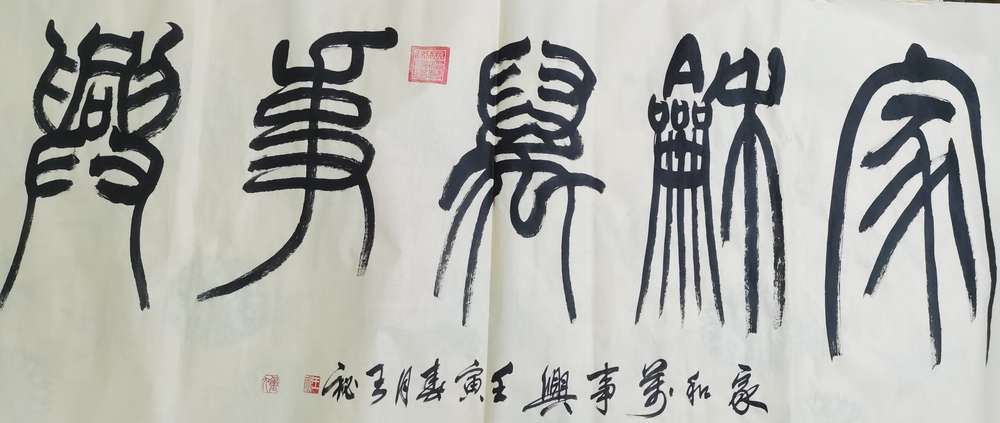 家龢萬事興
家和萬事興 壬寅春月 王秘